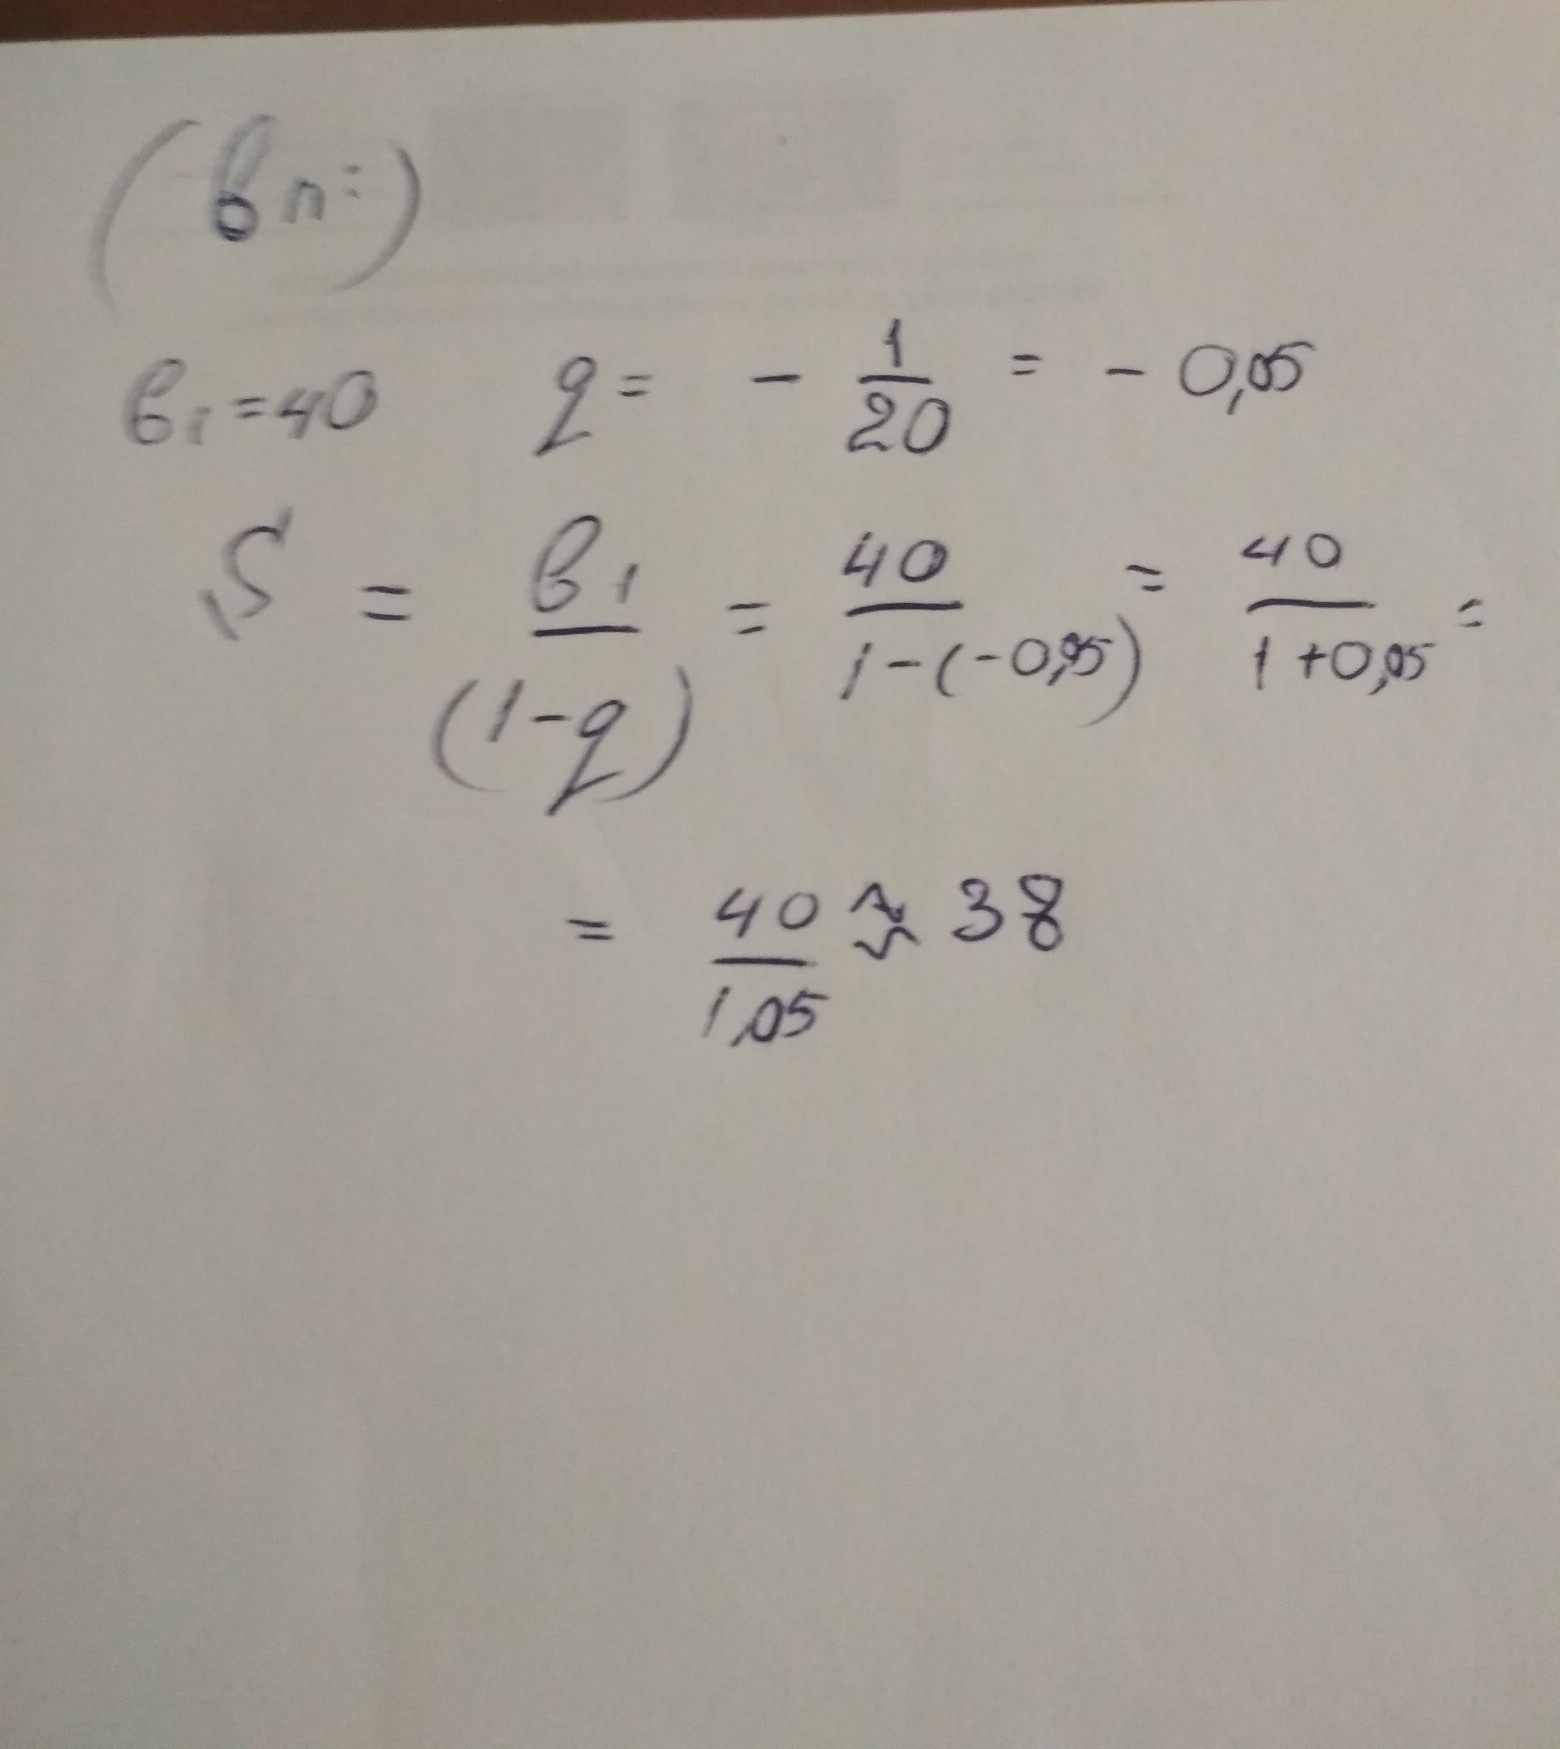 (bn:)
b₁=40 q= - 1/20 = - 0,05
S = b₁/(1-q) = 40/1-(-0,05) = 40/1+0,05 =
= 40/1,05 ≈ 38